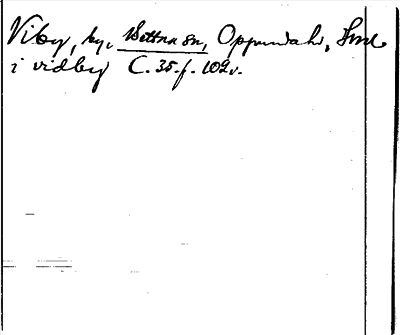 Viby, by, Bettna sn, Oppunda hd, Sml
i vidby C. 35. f. 102v.